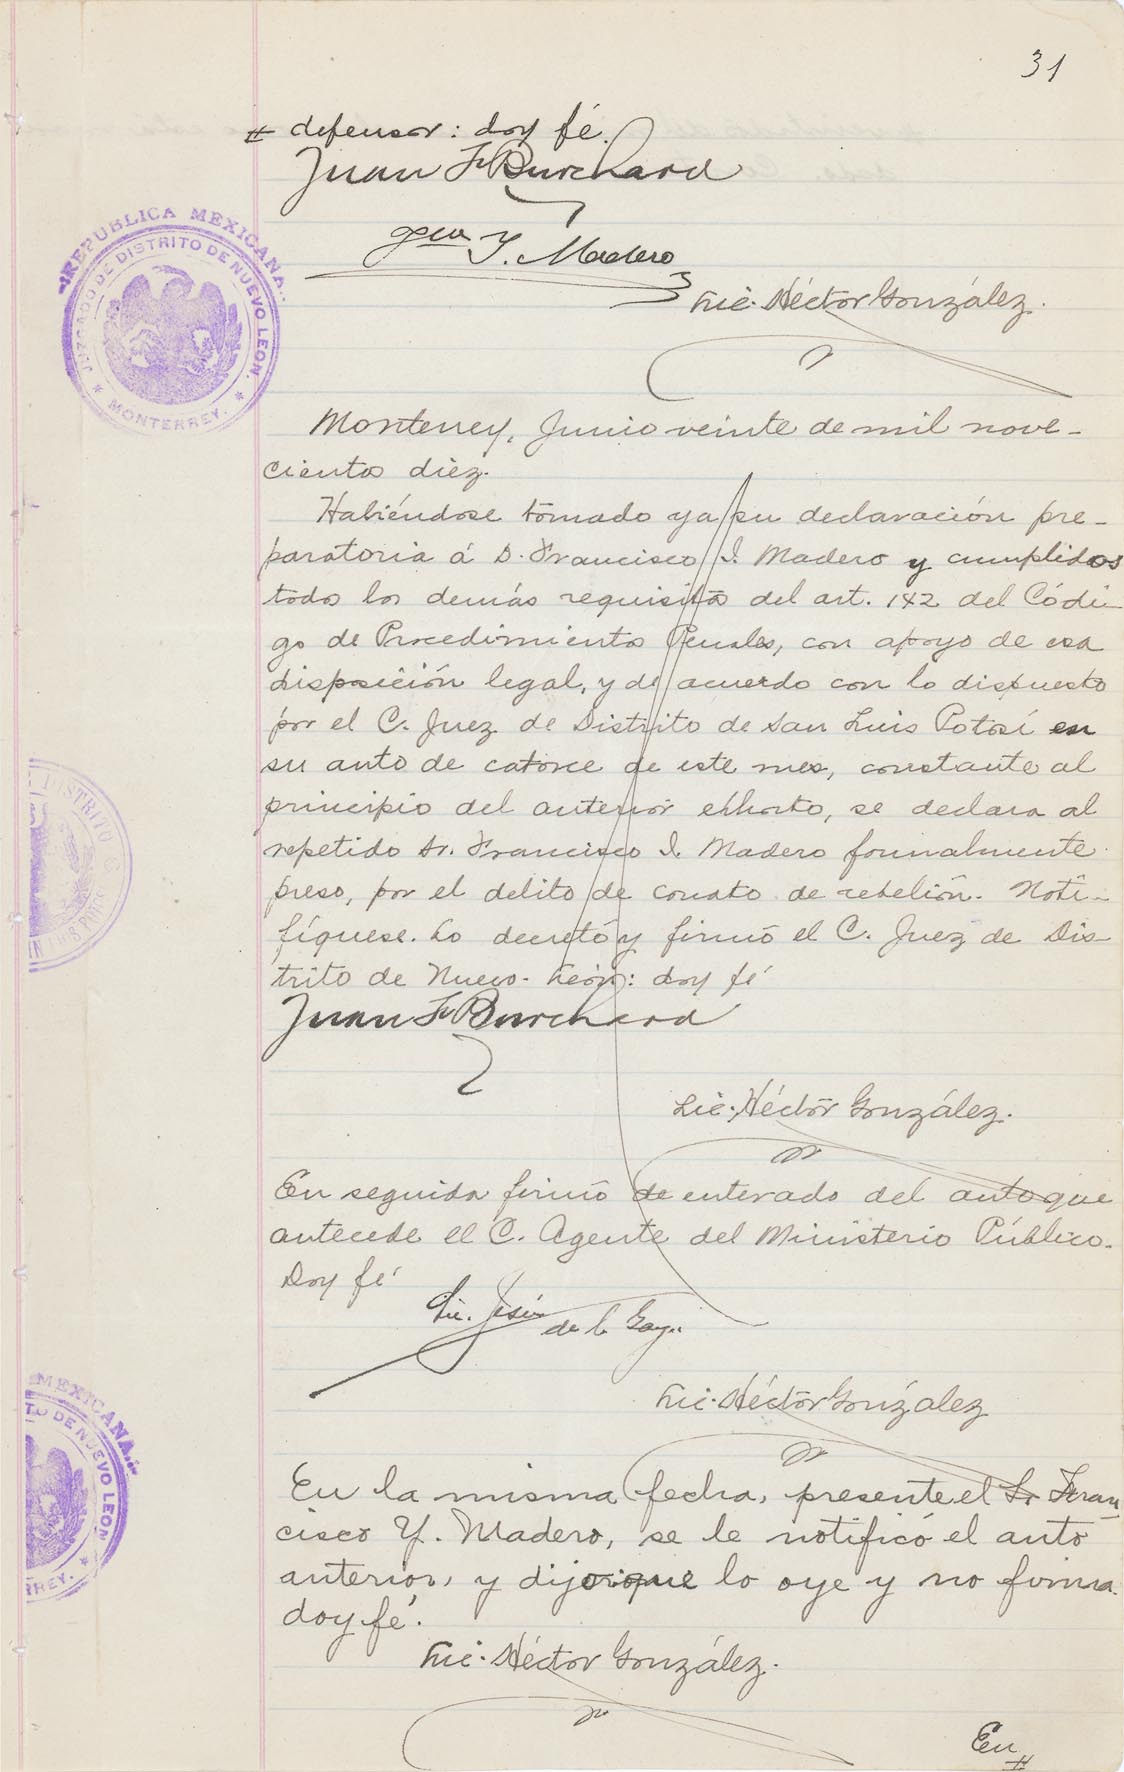 31
defensor: doy fé.
Juan F Burchard
Fco. Y. Madero
Lic. Héctor González.
REPUBLICA MEXICANA
JUZGADO DE DISTRITO DE NUEVO LEON.
* MONTERREY. *
Monterrey, Junio veinte de mil nove-
cientos diez.
Habiéndose tomado ya su declaración pre-
paratoria á D. Francisco I. Madero y cumplidos
todos los demás requisitos del art. 142 del Códi-
go de Procedimientos Penales, con apoyo de esa
disposición legal, y de acuerdo con lo dispuesto
por el C. Juez de Distrito de San Luis Potosí en
su auto de catorce de este mes, constante al
principio del anterior exhorto, se declara al
DISTRITO
repetido Sr. Francisco I. Madero formalmente
preso, por el delito de conato de rebelión. Noti-
fíquese. Lo decretó y firmó el C. Juez de Dis-
trito de Nuevo-León: doy fé
Juan F Burchard
Lic. Héctor González.
En seguida firmó de enterado del auto que
antecede el C. Agente del Ministerio Público.
Doy fé
Lic. Jesús
de la
Lic. Héctor González
MEXICANA
TO DE NUEVO LEON
RREY. *
En la misma fecha, presente el Sr Fran
cisco Y. Madero, se le notificó el auto
anterior, y dijo que lo oye y no firma.
doy fé.
Lic. Héctor González.
En